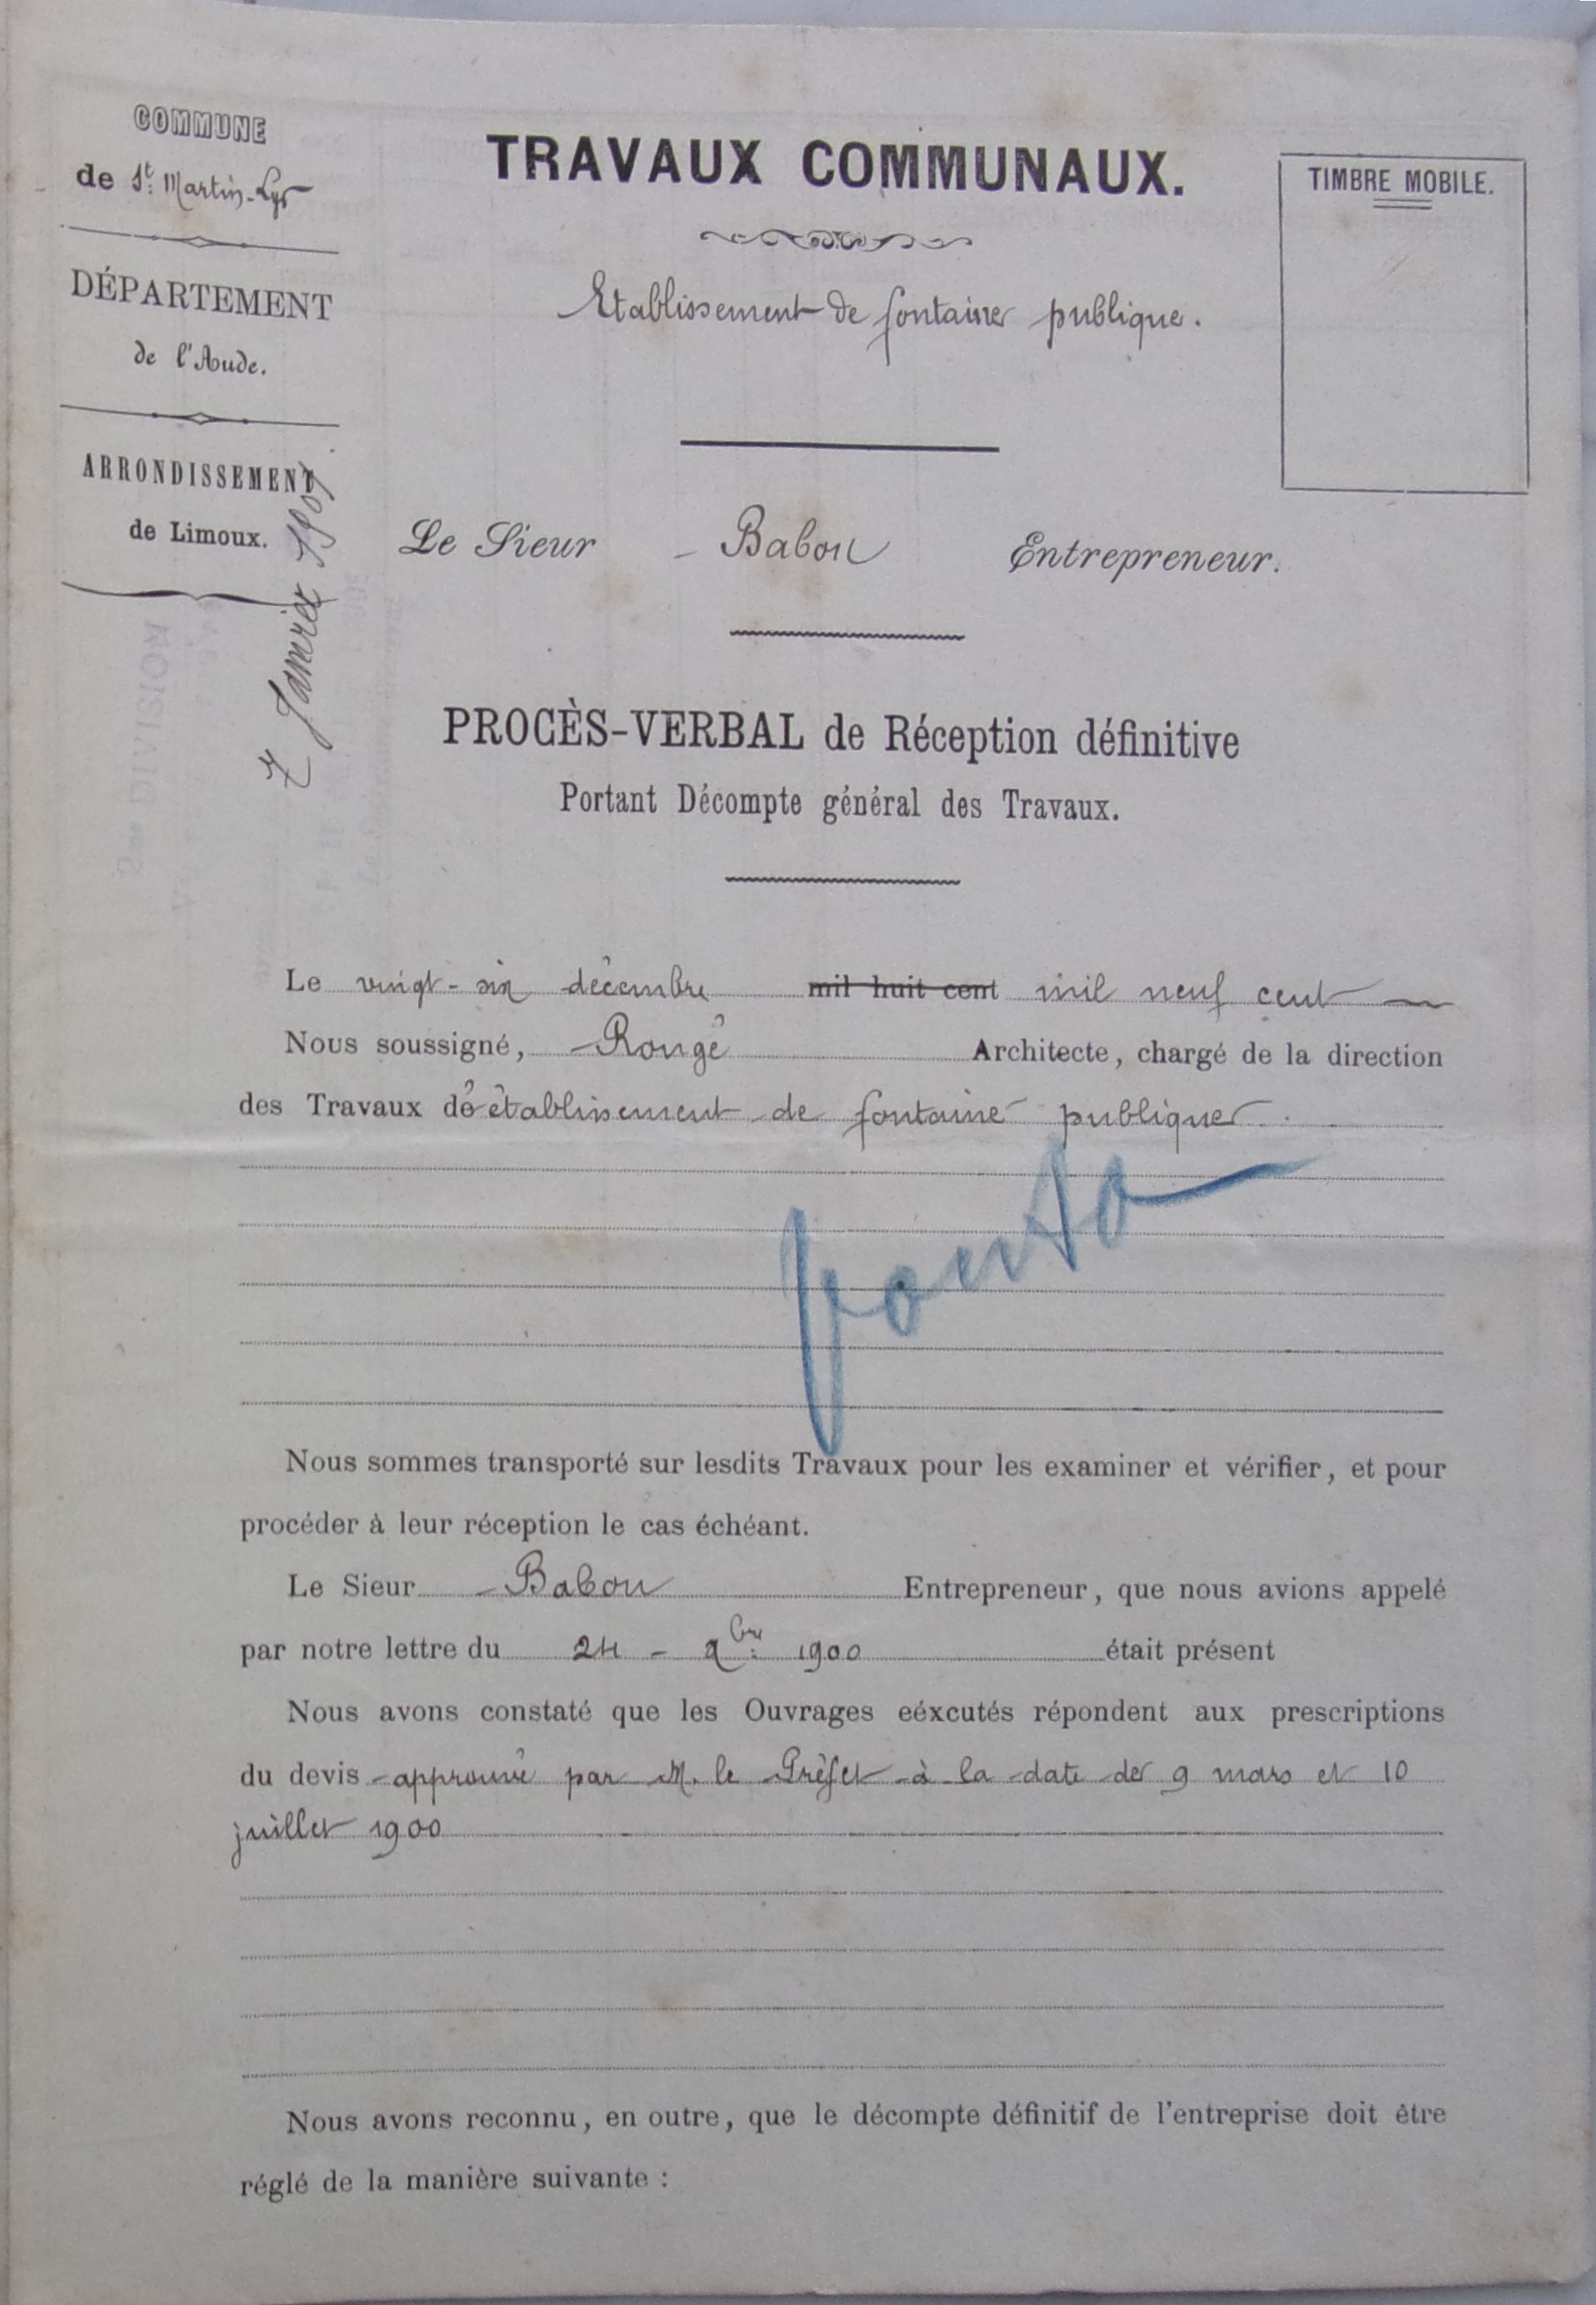 COMMUNE
de St. Martin-Lys
DÉPARTEMENT
de l'Aude.
ARRONDISSEMENT
de Limoux.
7 Janvier 1901
TRAVAUX COMMUNAUX.
TIMBRE MOBILE.
Etablissement de fontaines publiques.
Le Sieur - Babou Entrepreneur.
PROCÈS-VERBAL de Réception définitive
Portant Décompte général des Travaux.
Le vingt-six décembre mil huit cent mil neuf cent
Nous soussigné, - Rougé Architecte, chargé de la direction
des Travaux de établissement de fontaines publiques.
Nous sommes transporté sur lesdits Travaux pour les examiner et vérifier, et pour
procéder à leur réception le cas échéant.
Le Sieur - Babou Entrepreneur, que nous avions appelé
par notre lettre du 24 - Xbre 1900 était présent
Nous avons constaté que les Ouvrages eéxcutés répondent aux prescriptions
du devis approuvé par M. le Préfet à la date des 9 mars et 10
juillet 1900
Nous avons reconnu, en outre, que le décompte définitif de l'entreprise doit être
réglé de la manière suivante :